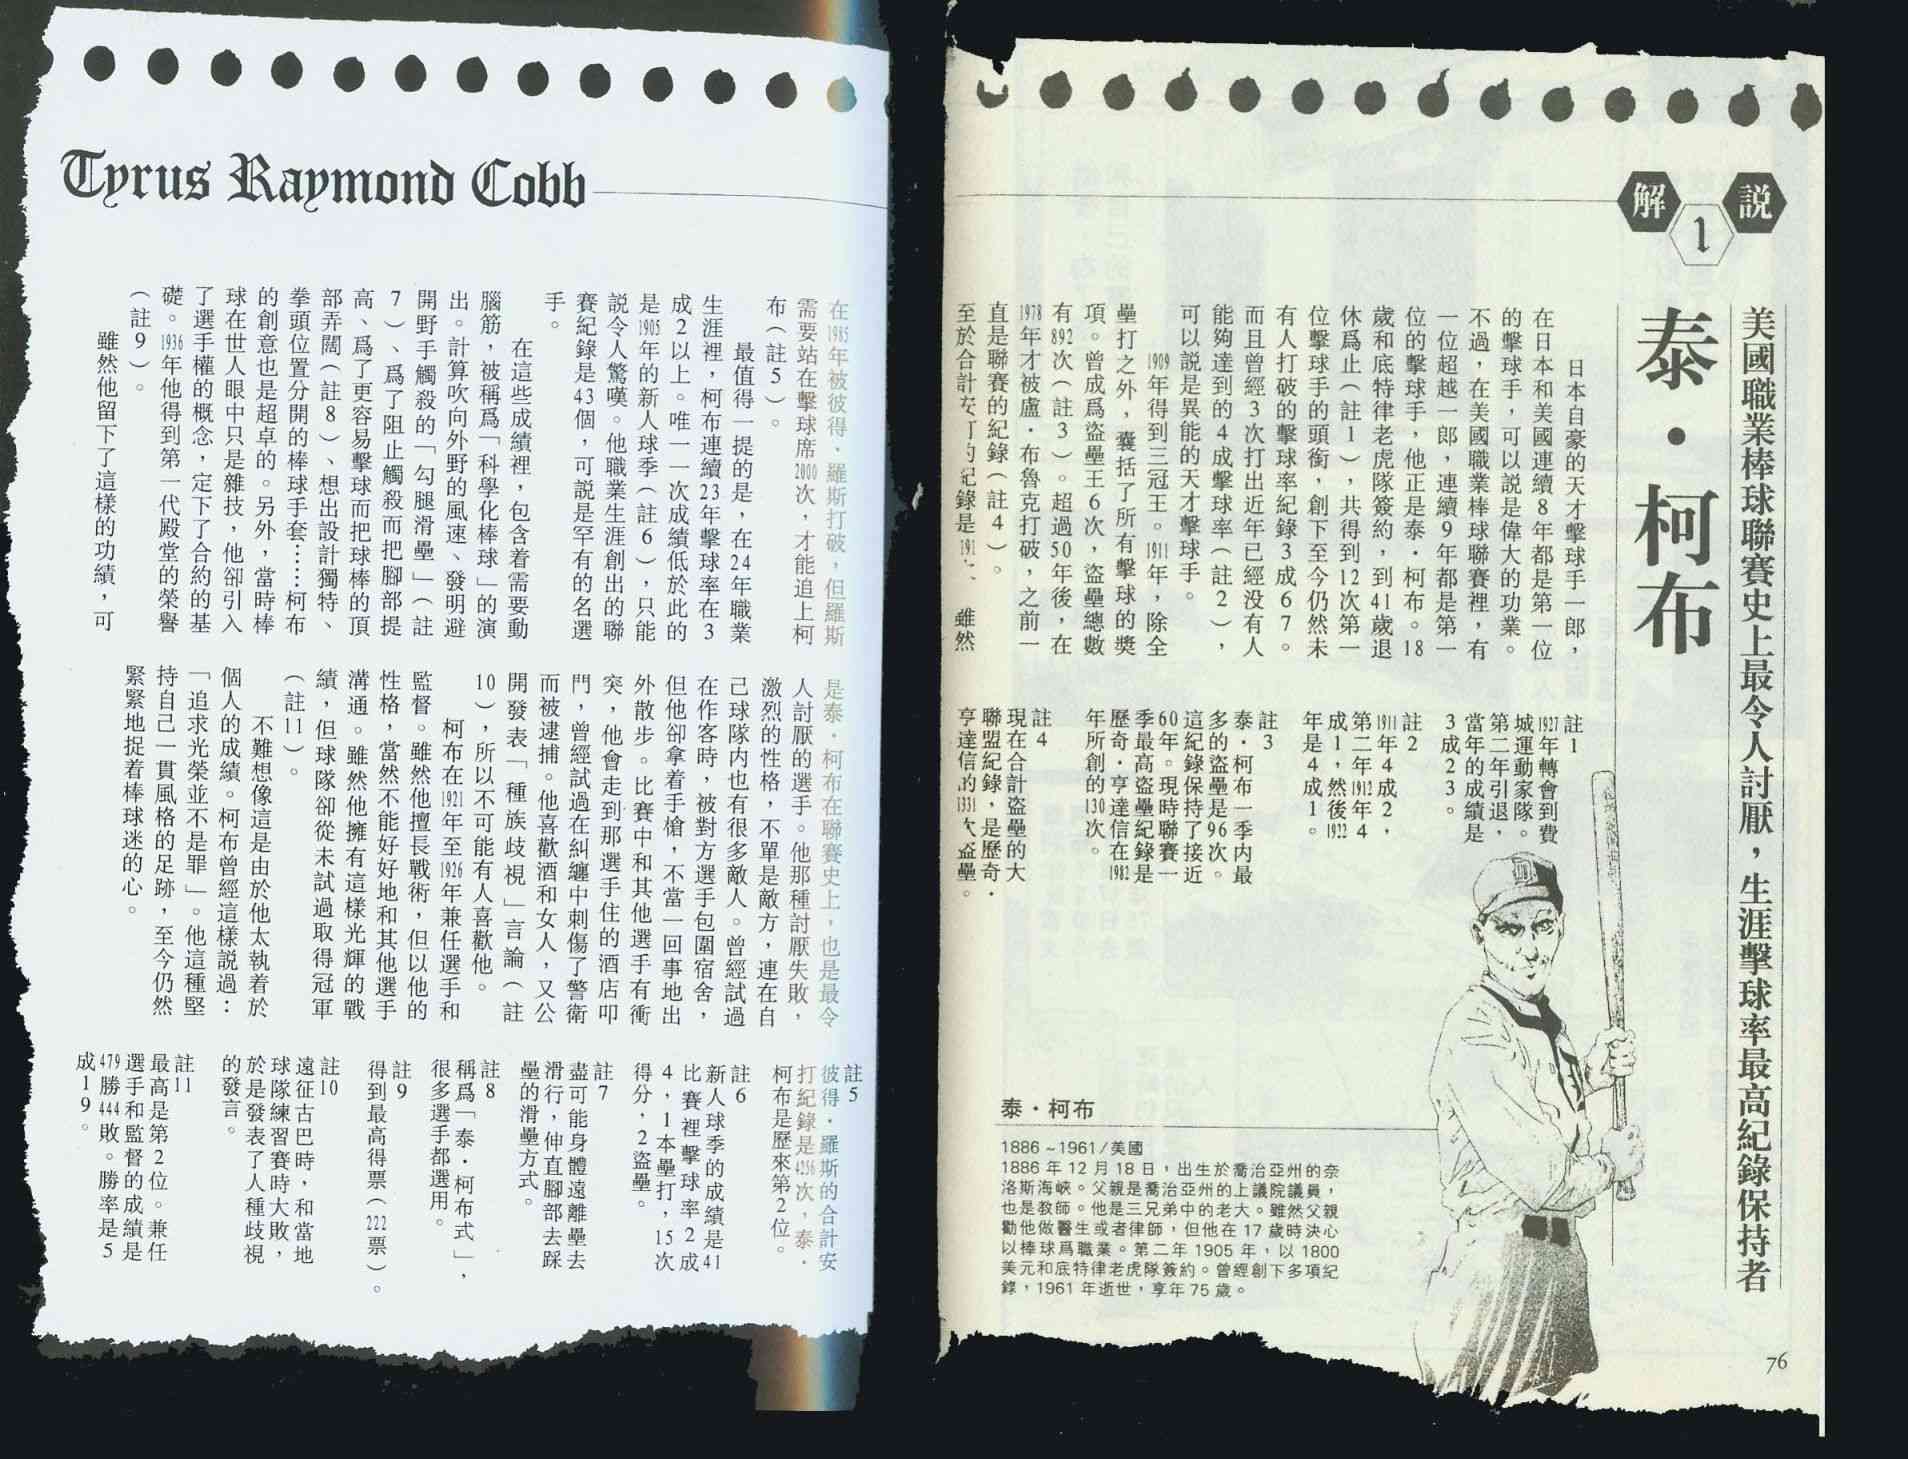 解
1
説
美國職業棒球聯賽史上最令人討厭，生涯擊球率最高紀錄保持者
泰・柯布
日本自豪的天才擊球手一郎，
在日本和美國連續8年都是第一位
的擊球手，可以說是偉大的功業。
不過，在美國職業棒球聯賽裡，有
一位超越一郎，連續9年都是第一
位的擊球手，他正是泰・柯布。18
歲和底特律老虎隊簽約，到41歲退
休爲止（註1），共得到12次第一
位擊球手的頭銜，創下至今仍然未
有人打破的擊球率紀錄3成67。
而且曾經3次打出近年已經没有人
能夠達到的4成擊球率（註2），
可以説是異能的天才擊球手。
1909年得到三冠王。1911年，除全
壘打之外，囊括了所有擊球的獎
項。曾成爲盜壘王6次，盜壘總數
有892次（註3）。超過50年後，在
1978年才被盧・布魯克打破，之前一
直是聯賽的紀錄（註4）。
雖然
註1
1927年轉會到費
城運動家隊。
第二年引退，
當年的成績是
3成23。
註2
1911年4成2，
第二年1912年4
成1，然後1922
年是4成1。
註3
泰・柯布一季内最
多的盜壘是96次。
這紀錄保持了接近
60年。現時聯賽一
季最高盜壘紀錄是
歷奇・亨達信在1982
年所創的130次。
註4
現在合計盜壘的大
聯盟紀錄，是歷奇・
亨達信的1331次盜壘。
泰・柯布
1886~1961/美國
1886年12月18日，出生於喬治亞州的奈
洛斯海峽。父親是喬治亞州的上議院議員，
也是教師。他是三兄弟中的老大。雖然父親
勸他做醫生或者律師，但他在17歲時決心
以棒球爲職業。第二年1905年，以1800
美元和底特律老虎隊簽約。曾經創下多項紀
錄，1961年逝世，享年75歲。
76
Tyrus Raymond Cobb
在1985年被彼得・羅斯打破，但羅斯
需要站在擊球席2000次，才能追上柯
布（註5）。
最值得一提的是，在24年職業
生涯裡，柯布連續23年擊球率在3
成2以上。唯一一次成績低於此的
是1905年的新人球季（註6），只能
説令人驚嘆。他職業生涯創出的聯
賽紀錄是43個，可說是罕有的名選
手。
在這些成績裡，包含着需要動
腦筋，被稱爲「科學化棒球」的演
出。計算吹向外野的風速、發明避
開野手觸殺的「勾腿滑壘」（註
7）、爲了阻止觸殺而把腳部提
高、爲了更容易擊球而把球棒的頂
部弄闊（註8）、想出設計獨特、
拳頭位置分開的棒球手套……柯布
的創意也是超卓的。另外，當時棒
球在世人眼中只是雜技，他卻引入
了選手權的概念，定下了合約的基
礎。1936年他得到第一代殿堂的榮譽
（註9）。
雖然他留下了這樣的功績，可
是泰・柯布在聯賽史上，也是最令
人討厭的選手。他那種討厭失敗，
激烈的性格，不單是敵方，連在自
己球隊内也有很多敵人。曾經試過
在作客時，被對方選手包圍宿舍，
但他卻拿着手愴，不當一回事地出
外散步。比賽中和其他選手有衝
突，他會走到那選手住的酒店叩
門，曾經試過在糾纏中刺傷了警衛
而被逮捕。他喜歡酒和女人，又公
開發表「種族歧視」言論（註
10），所以不可能有人喜歡他。
柯布在1921年至1926年兼任選手和
監督。雖然他擅長戰術，但以他的
性格，當然不能好好地和其他選手
溝通。雖然他擁有這樣光輝的戰
績，但球隊卻從未試過取得冠軍
（註11）。
不難想像這是由於他太執着於
個人的成績。柯布曾經這樣説過：
「追求光榮並不是罪」。他這種堅
持自己一貫風格的足跡，至今仍然
緊緊地捉着棒球迷的心。
註5
彼得・羅斯的合計安
打紀錄是4256次，泰・
柯布是歷來第2位。
註6
新人球季的成績是41
比賽裡擊球率2成
4，1本壘打，15次
得分，2盜壘。
註7
盡可能身體遠離壘去
滑行，伸直腳部去踩
壘的滑壘方式。
註8
稱爲「泰・柯布式」，
很多選手都選用。
註9
得到最高得票（222票）。
註10
遠征古巴時，和當地
球隊練習賽時大敗，
於是發表了人種歧視
的發言。
註11
最高是第2位。兼任
選手和監督的成績是
479勝444敗。勝率是5
成19。